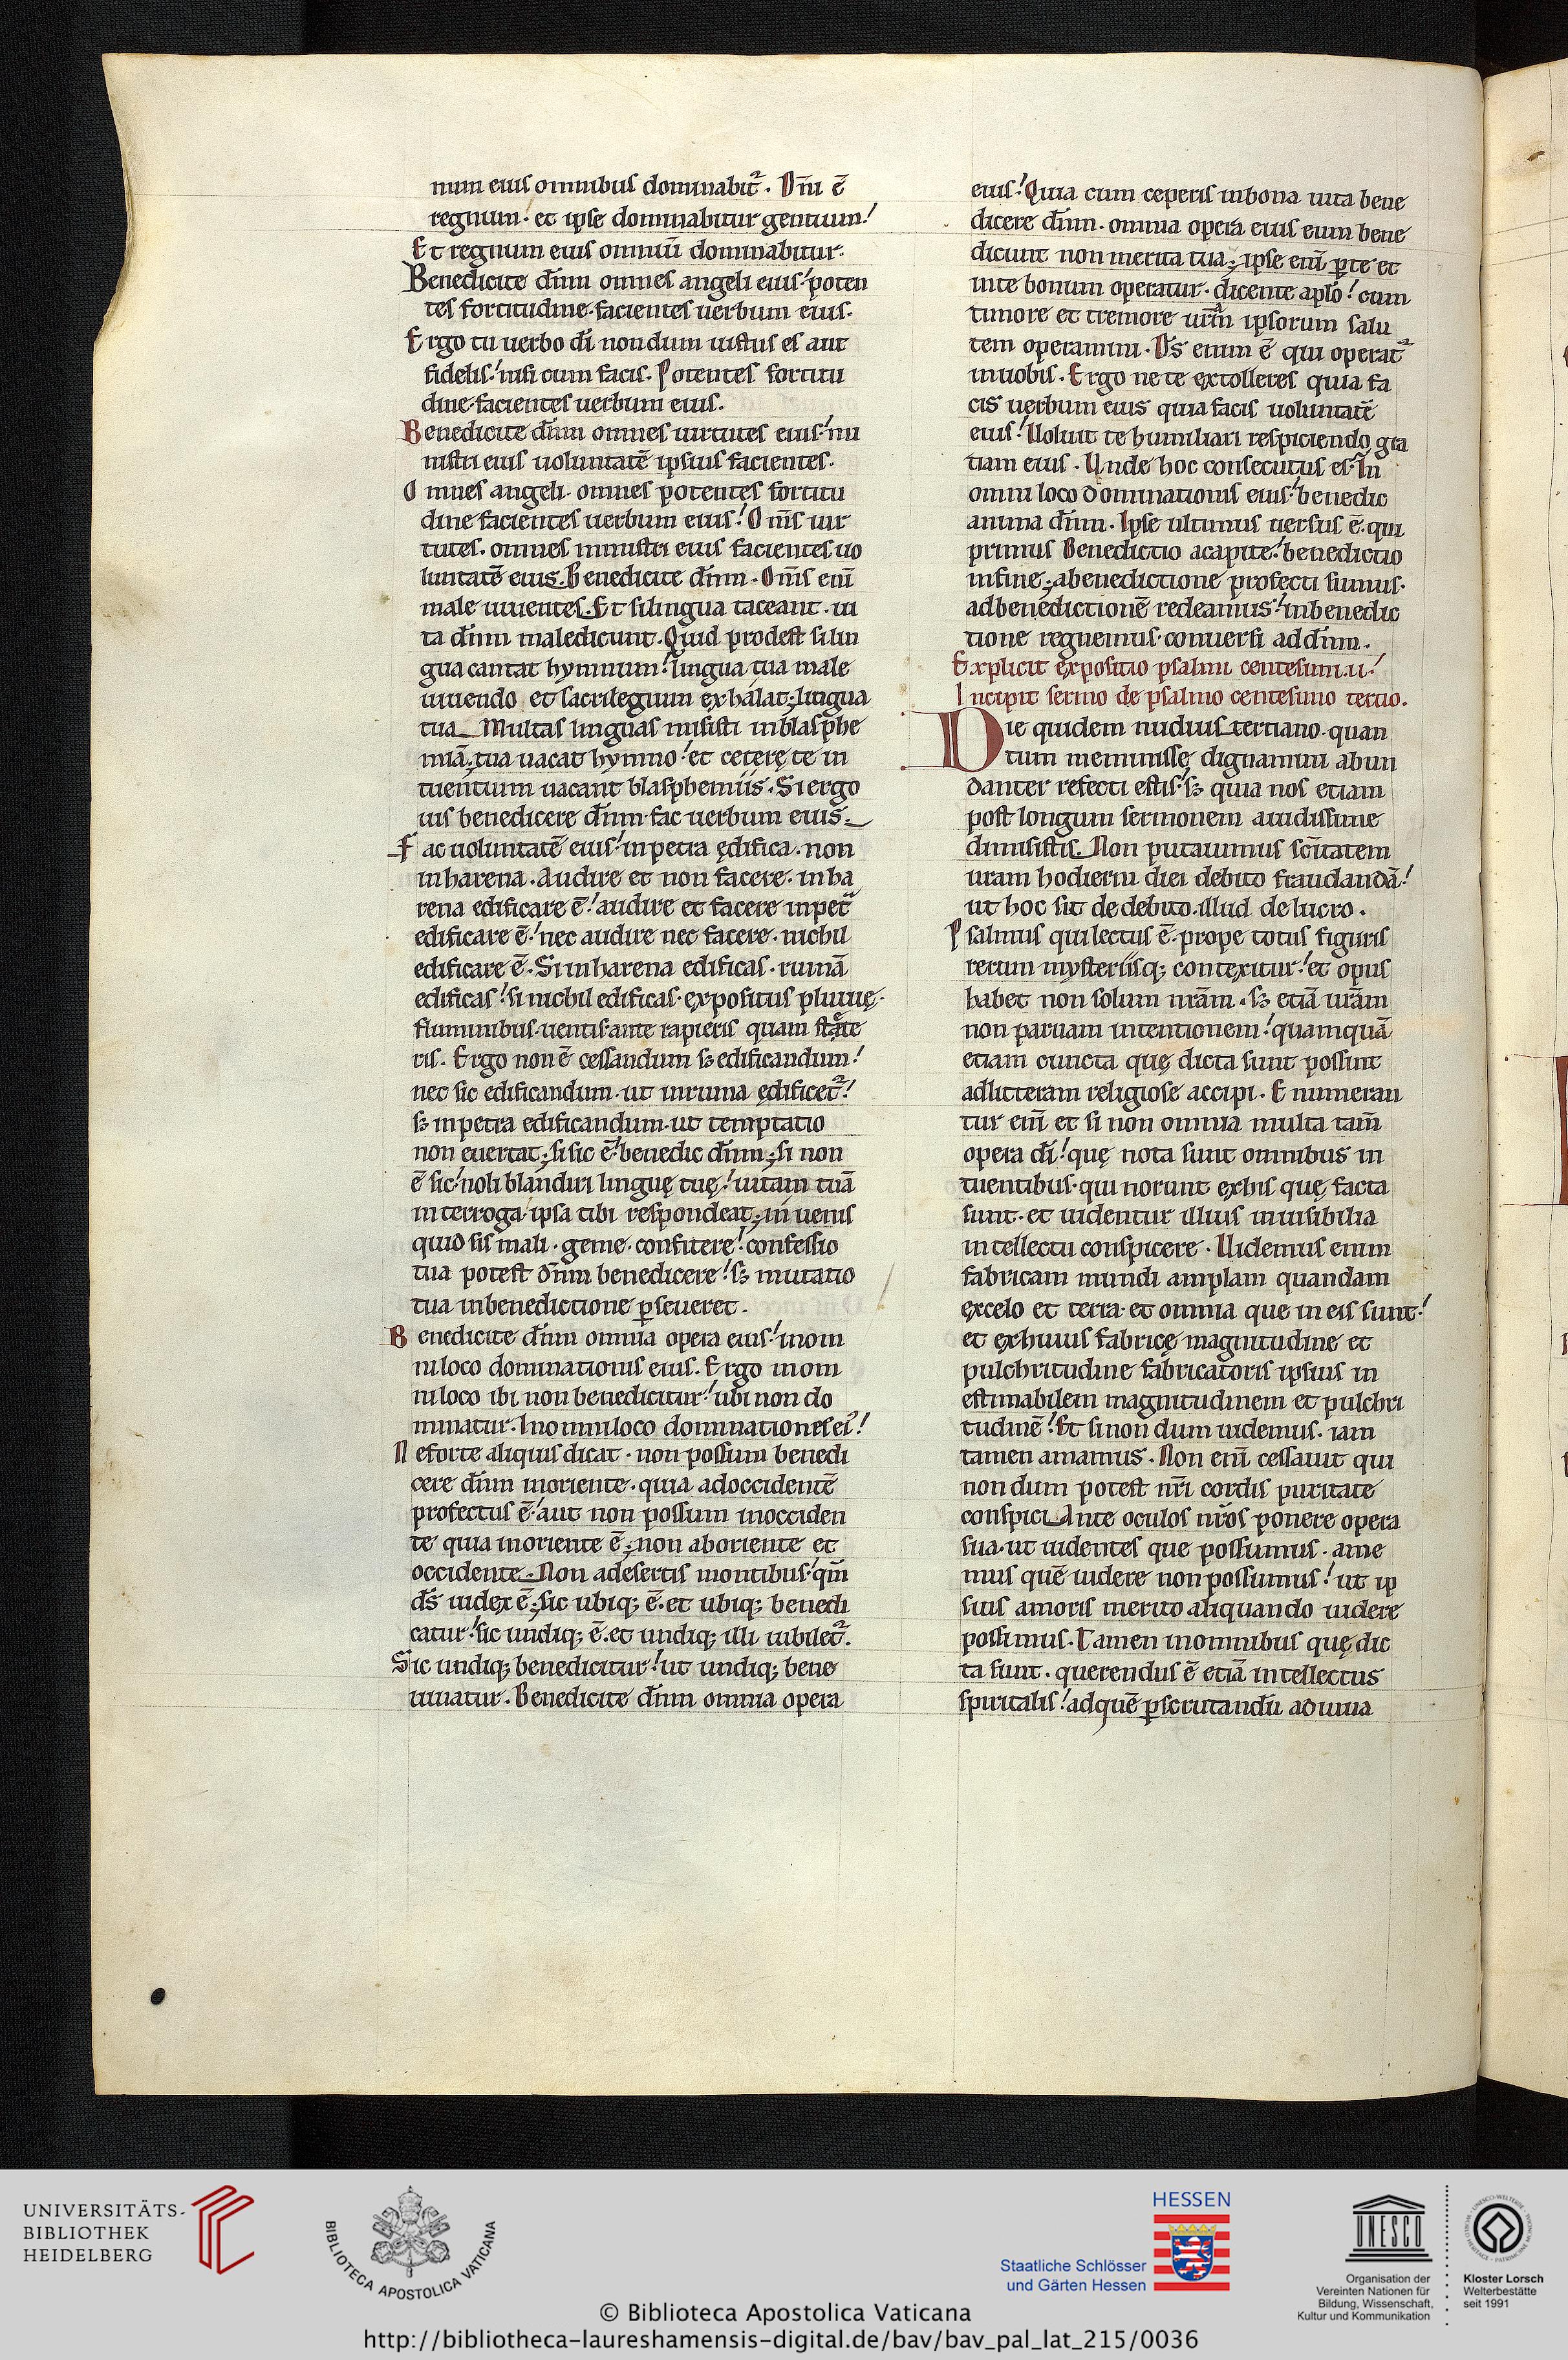 num eius omnibus dominabit᷑. Dn̄i ē
regnum. et ipse dominabitur gentium!
Et regnum eius omniū dominabitur.
Benedicite dn̄m omnes angeli eius! poten
tes fortitudine. facientes uerbum eius.
Ergo tu uerbo dī nondum iustus es aut
fidelis! nisi cum facis. Potentes fortitu
dine. facientes uerbum eius.
Benedicite dn̄m omnes uirtutes eius! mi
nistri eius uoluntatē ipsius facientes.
Omnes angeli. omnes potentes fortitu
dine facientes uerbum eius! Om̄s uir
tutes. omnes ministri eius facientes uo
luntatē eius. Benedicite dn̄m. Om̄s eni̅
male uiuentes. Et si lingua taceant. ui
ta dn̄m maledicunt. Quid prodest si lin
gua cantat hymnum! lingua tua male
uiuendo et sacrilegium exhalat; lingua
tua. Multas linguas misisti in blasphe
miā; tua uacat hymno! et ceterę te in
tuentium uacant blasphemiis. Si ergo
uis benedicere dn̄m. fac uerbum eius.
Fac uoluntatē eius! in petra ędifica. non
in harena. Audire et non facere. in ha
rena edificare ē! audire et facere in petᵃ
edificare ē! nec audire nec facere. nichil
edificare ē. Si in harena edificas. ruinā
edificas! si nichil edificas. expositus pluuię.
fluminibus. uentis. ante rapieris quam state
ris. Ergo non ē cessandum sꝫ edificandum!
nec sic edificandum. ut in ruina ędificet᷑!
sꝫ in petra edificandum. ut temptatio
non euertat; si sic ē! benedic dn̄m; si non
ē sic! noli blandiri linguę tuę! uitam tuā
interroga. ipsa tibi respondeat; inuenis
quid sis mali. geme. confitere! confessio
tua potest dn̄m benedicere! sꝫ mutatio
tua in benedictione ꝑseueret.
Benedicite dn̄m omnia opera eius! in om
ni loco dominationis eius. Ergo in om
ni loco ibi non benedicitur! ubi non do
minatur. In omni loco dominationes ei᷒!
Ne forte aliquis dicat. non possum benedi
cere dn̄m in oriente. quia ad occidentē
profectus ē! aut non possum in occiden
te quia in oriente ē; non ab oriente et
occidente. Non a desertis montibus! qm̄
ds̄ iudex ē; sic ubiqꝫ ē. et ubiqꝫ benedi
catur! sic undiqꝫ ē. et undiqꝫ illi iubilet᷑.
Sic undiqꝫ benedicitur! ut undiqꝫ bene
uiuatur. Benedicite dn̄m omnia opera
eius! Quia cum ceperis in bona uita bene
dicere dn̄m. omnia opera eius eum bene
dicunt non merita tua; ipse eni̅ ꝑ te et
in te bonum operatur. dicente aplō! cum
timore et tremore urm̄ ipsorum salu
tem operamini. Ds̄ enim ē qui operat᷑
in uobis. Ergo ne te extolleres quia fa
cis uerbum eius quia facis uoluntatē
eius! Uoluit te humiliari respiciendo gra
tiam eius. Unde hoc consecutus es. In
omni loco dominationis eius! benedic
anima dn̄m. Ipse ultimus uersus ē. qui
primus Benedictio a capite! benedictio
in fine; a benedictione profecti sumus.
ad benedictionē redeamus! in benedic
tione regnemus. conuersi ad dn̄m.
Explicit expositio psalmi centesim.ii.!
Incipit sermo de psalmo centesimo tertio.
Die quidem nudius tertiano. quan
tum meminisse dignamini abun
danter refecti estis! sꝫ quia nos etiam
post longum sermonem auidissime
dimisistis. Non putauimus scīitatem
uram hodierni diei debito fraudandā!
ut hoc sit de debito. illud de lucro.
Psalmus qui lectus ē. prope totus figuris
rerum mysteriisqꝫ contexitur! et opus
habet non solum nrām. sꝫ etiā urām
non paruam intentionem! quamquā
etiam cuncta quę dicta sunt possint
ad litteram religiose accipi. Enumeran
tur eni̅ et si non omnia multa tam̄
opera dī! quę nota sunt omnibus in
tuentibus. qui norunt ex his quę facta
sunt. et uidentur illius inuisibilia
intellectu conspicere. Uidemus enim
fabricam mundi amplam quandam
ex celo et terra. et omnia que in eis sunt!
et ex huius fabricę magnitudine et
pulchritudine fabricatoris ipsius in
estimabilem magnitudinem et pulchri
tudinē! Et si non dum uidemus. iam
tamen amamus. Non eni̅ cessauit qui
non dum potest nr̄i cordis puritate
conspici. Ante oculos nr̄os ponere opera
sua. ut uidentes que possumus. ame
mus quē uidere non possumus! ut ip
sius amoris merito aliquando uidere
possimus. Tamen in omnibus quę dic
ta sunt. querendus ē etiā intellectus
spiritalis! ad quē ꝑscrutandū adiuua
UNIVERSITÄTS-
BIBLIOTHEK
HEIDELBERG
BIBLIOTECA APOSTOLICA VATICANA
HESSEN
Staatliche Schlösser
und Gärten Hessen
UNESCO
Organisation der
Vereinten Nationen für
Bildung, Wissenschaft,
Kultur und Kommunikation
Kloster Lorsch
Welterbestätte
seit 1991
© Biblioteca Apostolica Vaticana
http://bibliotheca-laureshamensis-digital.de/bav/bav_pal_lat_215/0036